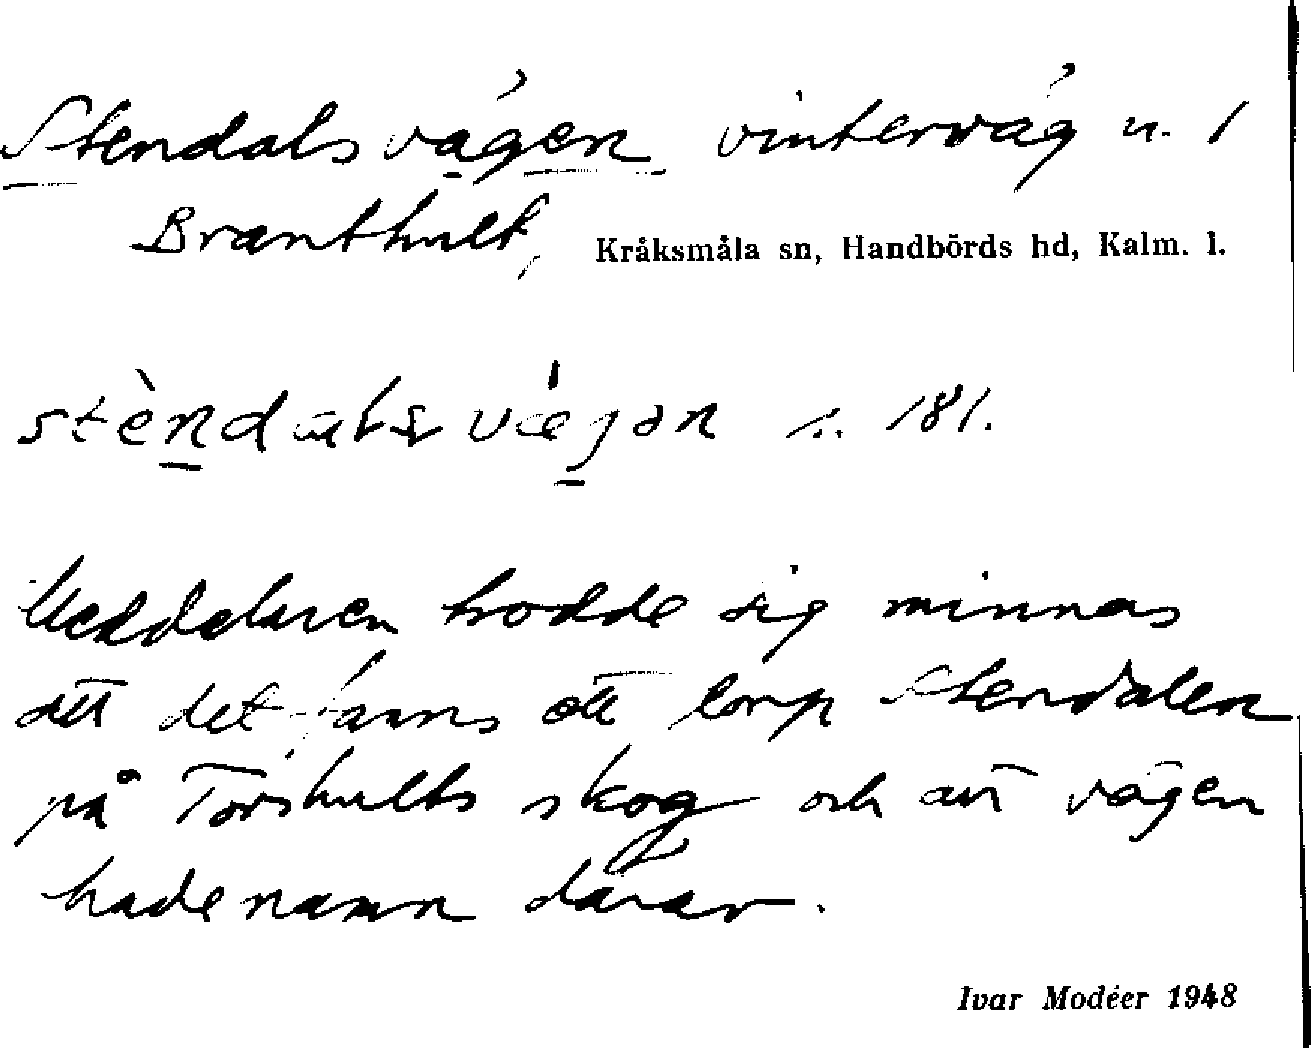 Stendalsvägen vinterväg u. 1
Branthult, Kråksmåla sn, Handbörds hd, Kalm. l.
stèndalsvægən s. 181.
Meddelaren trodde sig minnas
att det fanns ett torp Stendalen
på Torshults skog och att vägen
hade namn därav.
Ivar Modéer 1948